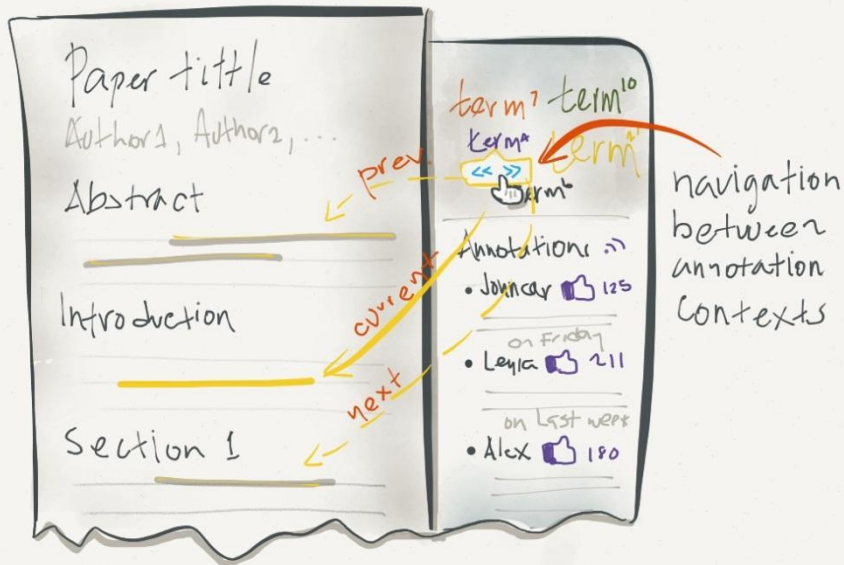 Paper tittle
Author1, Author2, ...
Abstract
Introduction
Section 1
prev.
current
next
term⁷ term¹⁰
term⁴
term
<< >>
term⁶
Annotations
• Johncar 125
on Friday
• Leyla 211
on Last week
• Alex 180
navigation
between
annotation
contexts